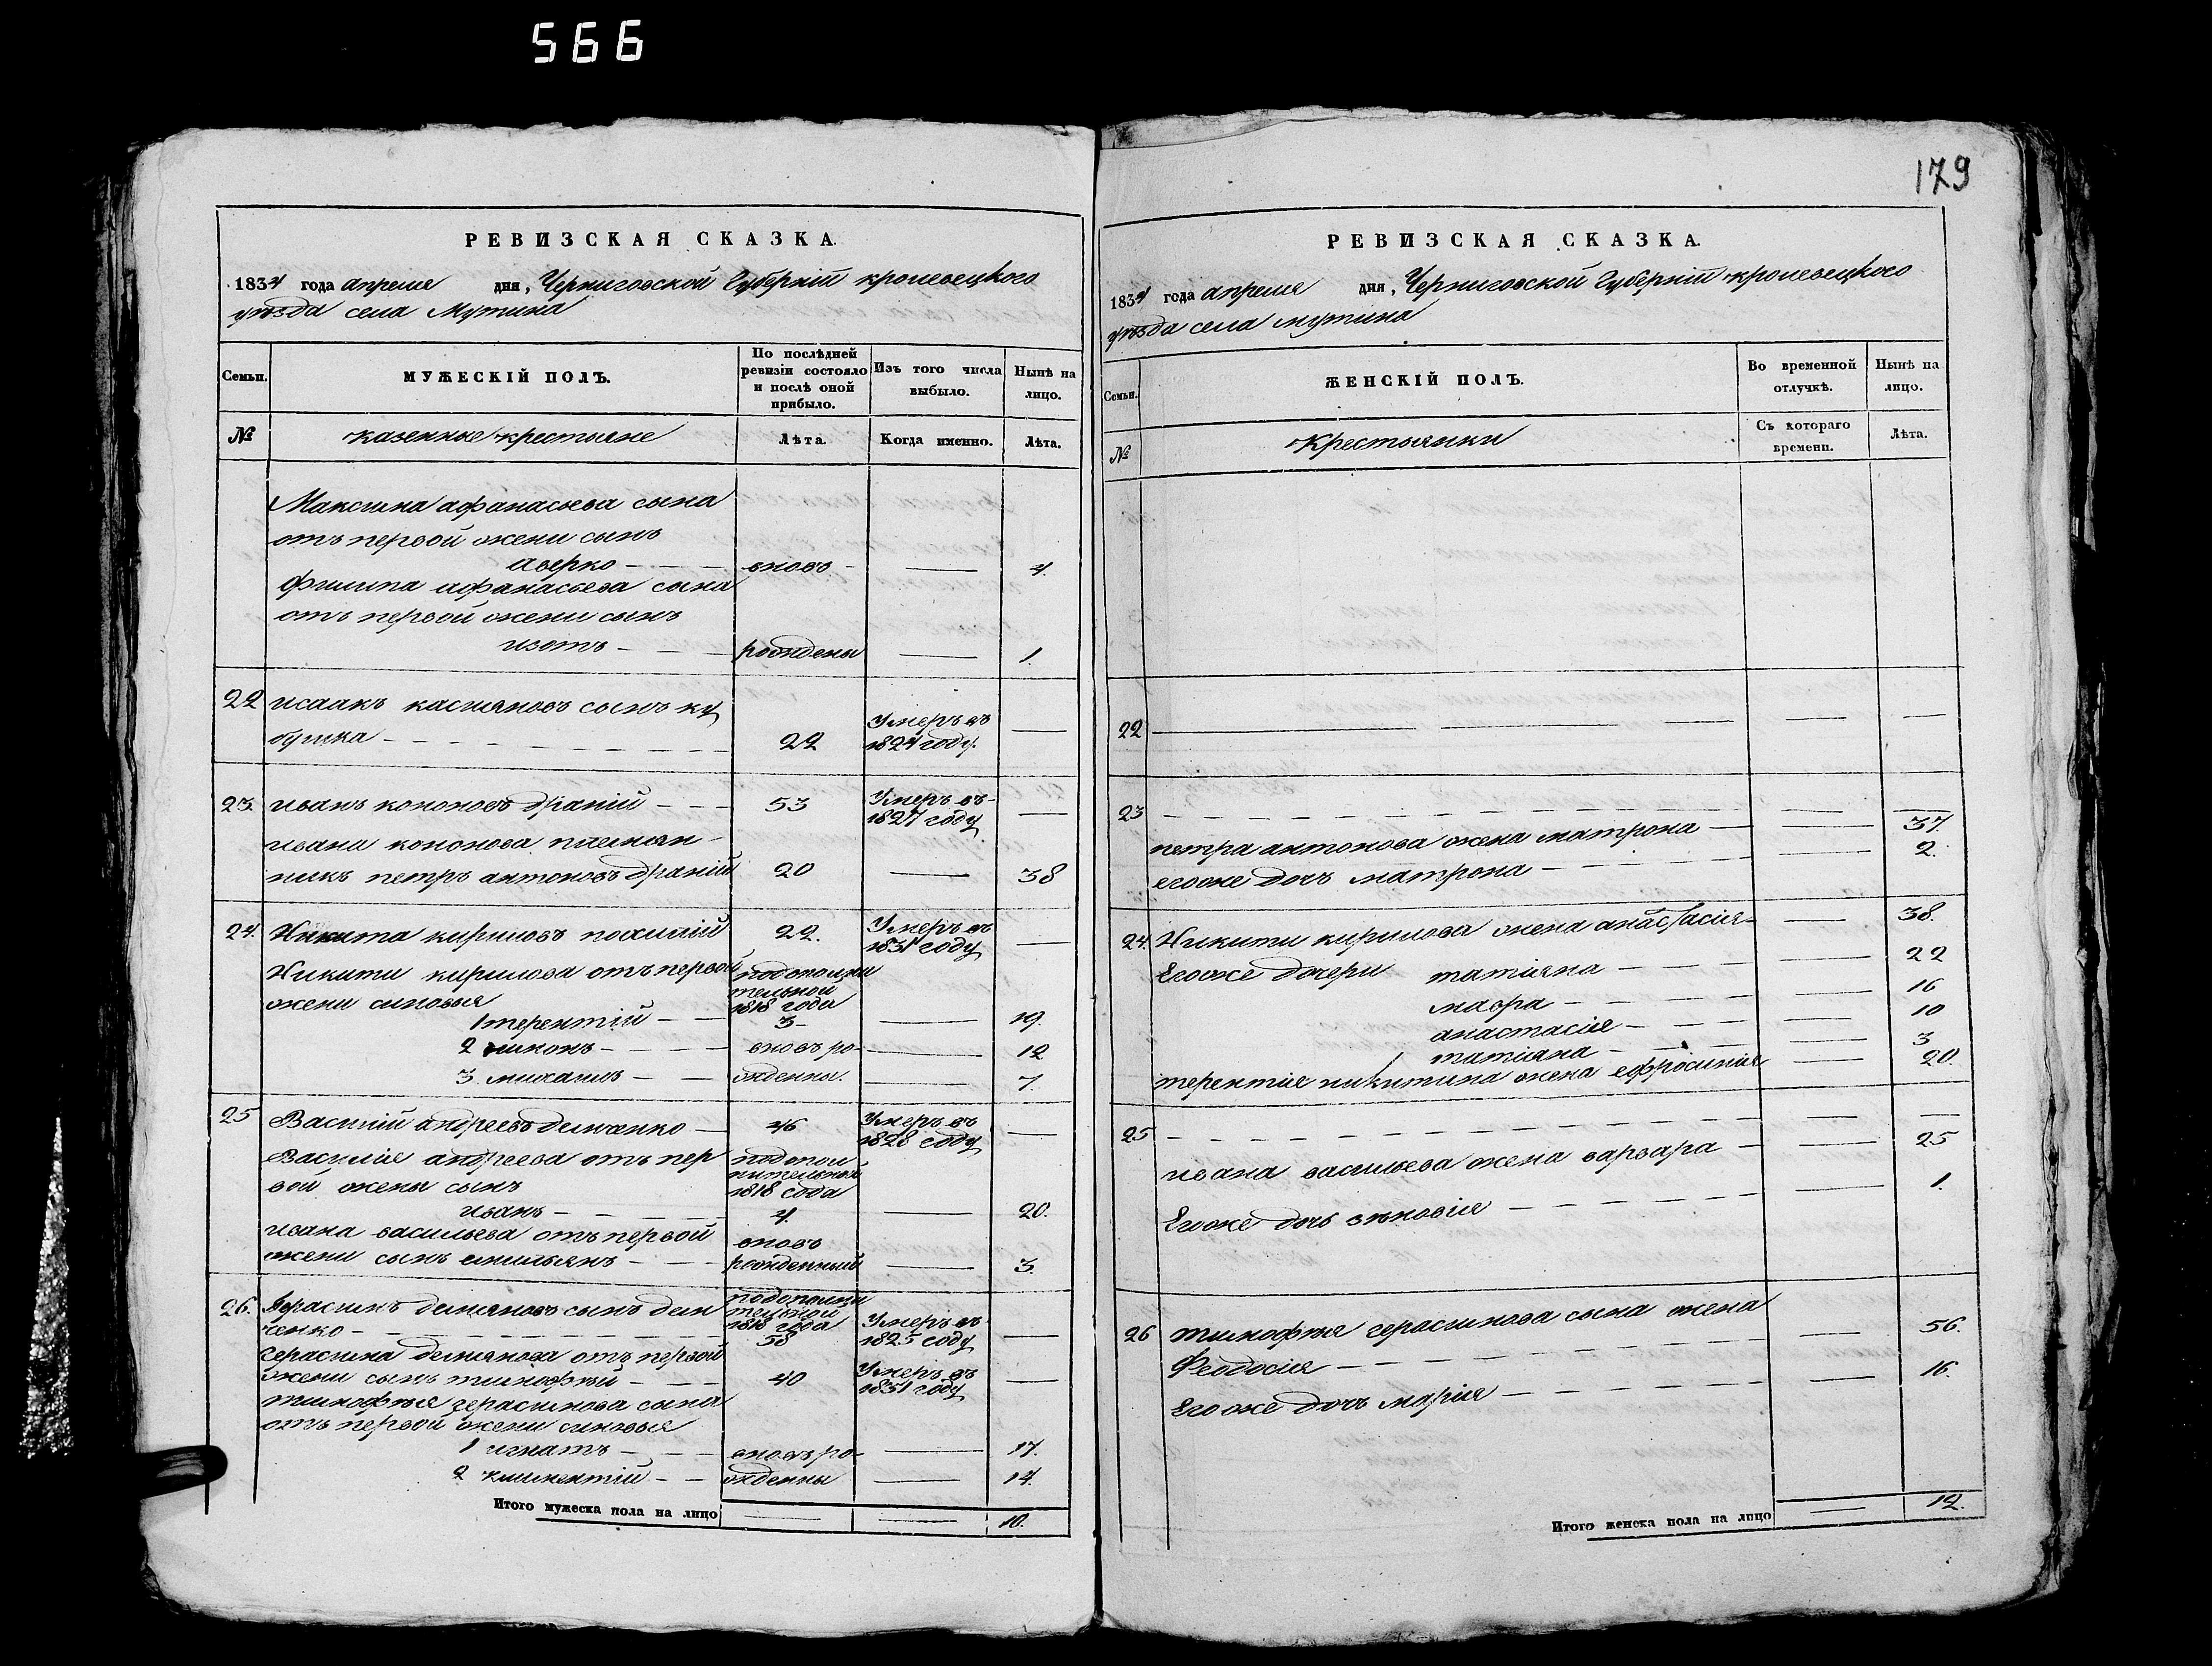 566
179
РЕВИЗСКАЯ СКАЗКА.
1834 года апреля дня, Черниговской Губерніи кролевецкого
уѣзда села Мутина
Семьи.
МУЖЕСКІЙ ПОЛЪ.
По послѣдней ревизіи состояло и послѣ оной прибыло.
Изъ того числа выбыло.
Нынѣ на лицо.
№
казенные крестьяне
Лѣта.
Когда именно.
Лѣта.
Максима афанасьева сына
отъ первой жени сынъ
аверко — вновь — 4.
филипа афанасьева сына
отъ первой жени сынъ
изотъ — рождены — 1.
22 исаакъ касияновъ сынъ ку
бушка — 22 Умеръ въ 1824 году. —
23. иванъ кононовъ драній — 53 Умеръ въ 1827 году —
ивана кононова племян
никъ петръ антоновъ драній 20 — 38
24. Никита кириловъ похилій 22. Умеръ въ 1831 году —
Никити кирилова отъ первой подополни
жени синовья тельной 1818 года
1 терентій — 3 — 19.
2 — вновъ ро — 12
3. михаилъ — жденны. — 7.
25 Василій андреевъ демченко — 46 Умеръ въ 1828 году —
Василія андреева отъ пер подопол
вой жены сынъ нительной 1818 года
иванъ — 4. — 20.
ивана васильева отъ первой вновъ
жени сынъ емильянъ — рожденный — 3.
26. Герасимъ демяновъ сынъ дем подополни тельной 1818 года
ченко — 58 Умеръ въ 1825 году —
герасима демянова отъ первой
жени сынъ тимофѣй — 40 Умеръ въ 1831 году —
тимофѣя герасимова сына
отъ первой жени синовья
1 игнатъ — вновъ ро — 17.
2 климентій — жденны — 14.
Итого мужеска пола на лицо — — 10.
РЕВИЗСКАЯ СКАЗКА.
1834 года апреля дня, Черниговской Губерніи кролевецкого
уѣзда села мутина
Семьи.
ЖЕНСКІЙ ПОЛЪ.
Во временной отлучкѣ.
Нынѣ на лицо.
№
Крестьянки
Съ котораго времени.
Лѣта.
22 — — —
23 — — —
петра антонова жена матрона — — 37.
егоже дочъ матрона — — 2.
24. Никити кирилова жена анастасія — — 38.
Егоже дочери татіяна — — 22
мавра — — 16
анастасія — — 10
татіяна — — 3
терентія никитина жена ефросинія — 20.
25 — — —
ивана васильева жена варвара — — 25
Егоже дочь зѣновія — — 1.
26 тимофѣя герасимова сына жена
Феодосія — — 56.
Егоже дочъ марія — — 16.
Итого женска пола на лицо — 12.